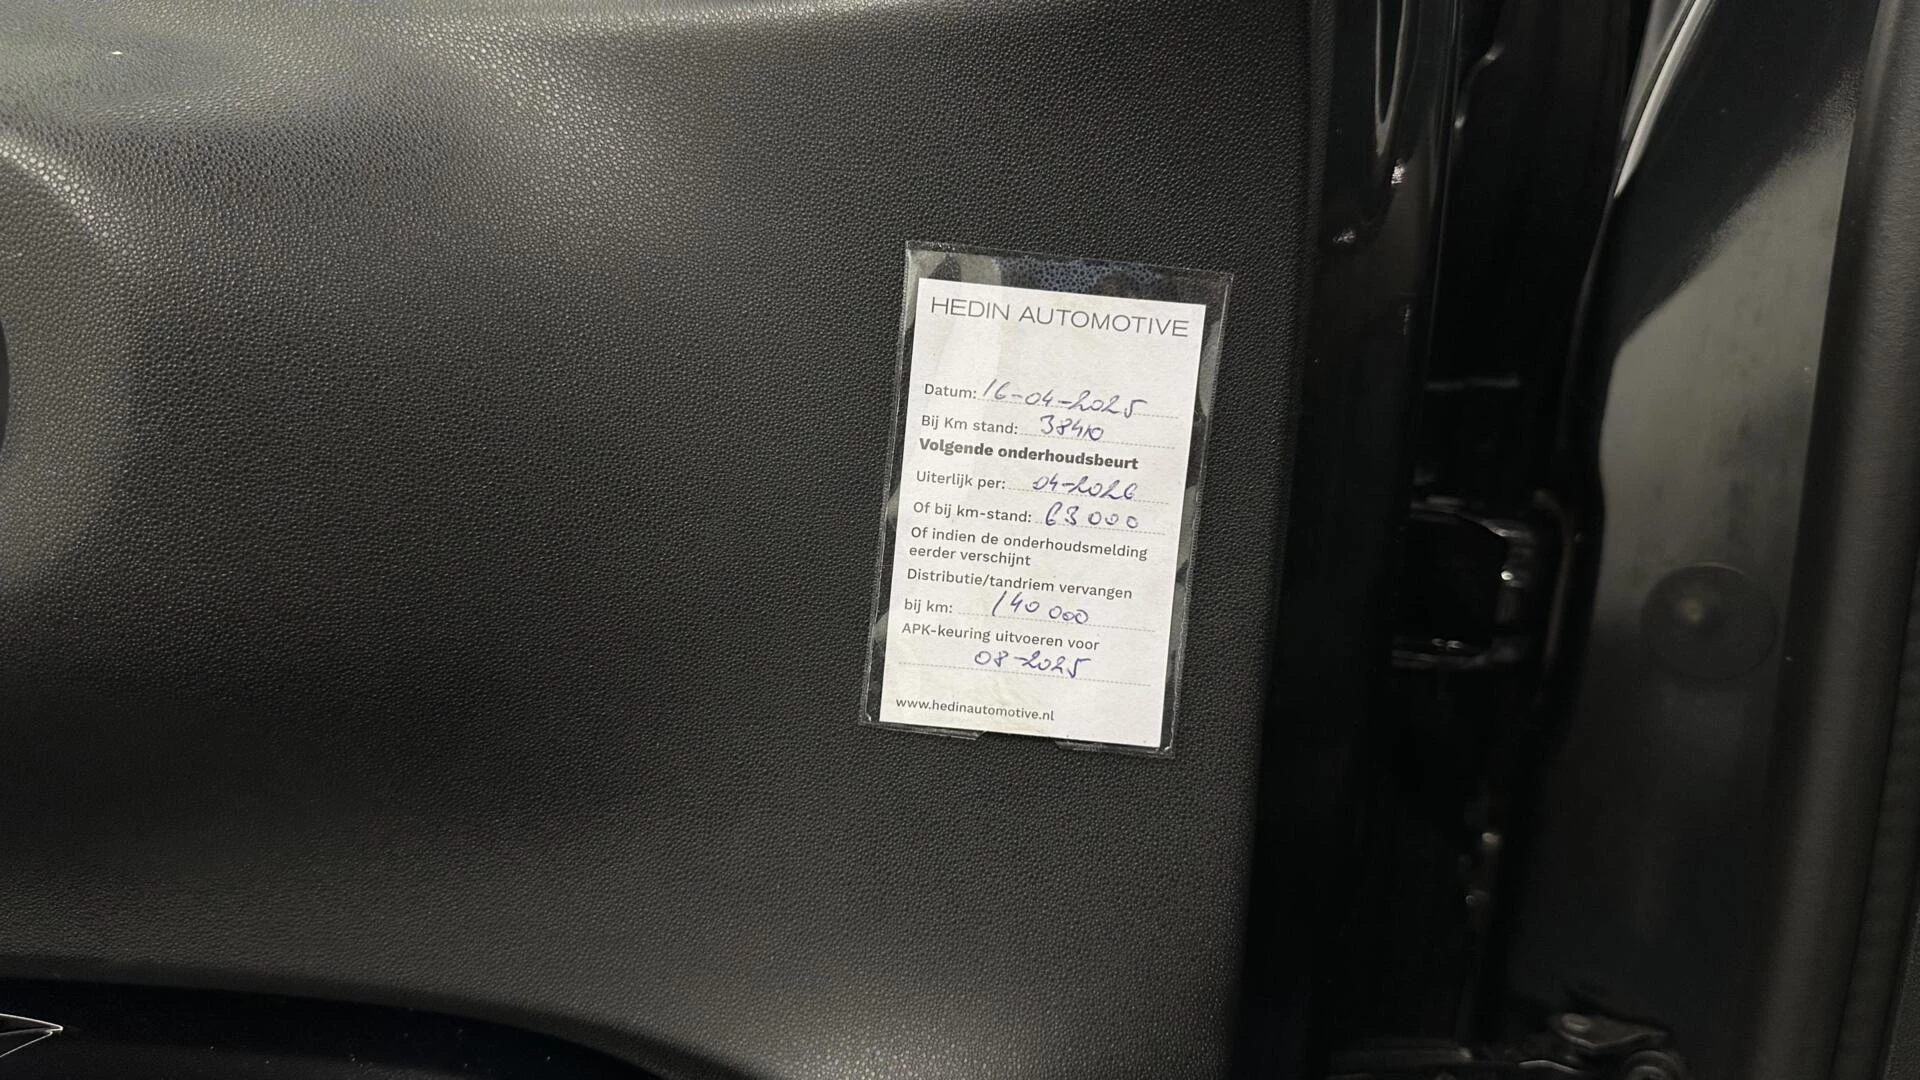 HEDIN AUTOMOTIVE
Datum: 16-04-2025
Bij Km stand: 38410
Volgende onderhoudsbeurt
Uiterlijk per: 04-2026
Of bij km-stand: 63 000
Of indien de onderhoudsmelding
eerder verschijnt
Distributie/tandriem vervangen
bij km: 140 000
APK-keuring uitvoeren voor
08-2025
www.hedinautomotive.nl